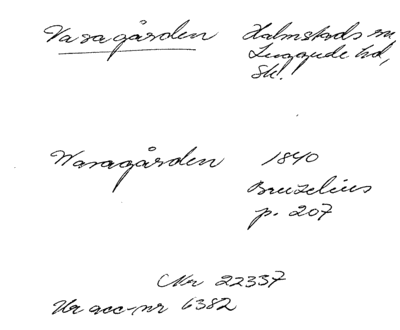 Vasagården Halmstads sn,
Luggude hd,
Sk!
Wasagården 1840
Bruzelius
p. 207
Nr 22337
Ur acc-nr 6382